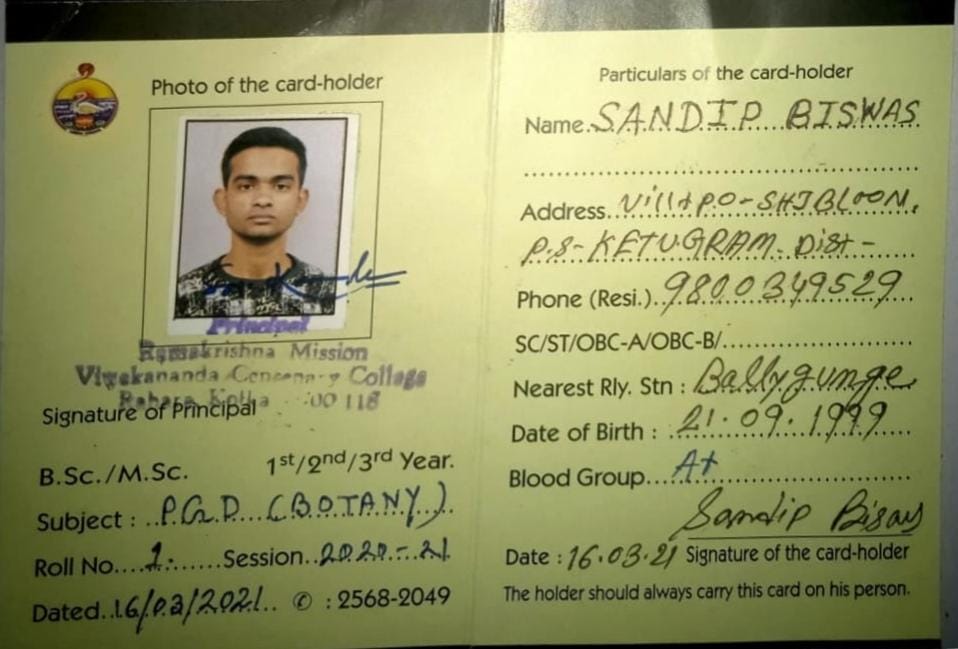 Photo of the card-holder
Principal
Ramakrishna Mission
Vivekananda Centenary College
Rahara Kolka 700 118
Signature of Principal
B.Sc./M.Sc. 1st/2nd/3rd Year.
Subject : P.G.D (BOTANY)
Roll No. 1. Session 2020-21
Dated 16/03/2021 ✆ : 2568-2049
Particulars of the card-holder
Name SANDIP BISWAS
Address Vill+P.O-SHIBLOON,
P.S-KETUGRAM. Dist-
Phone (Resi.) 9800349529
SC/ST/OBC-A/OBC-B/
Nearest Rly. Stn : Ballygunge
Date of Birth : 21.09.1999
Blood Group A+
Sandip Biswas
Date : 16.03.21 Signature of the card-holder
The holder should always carry this card on his person.